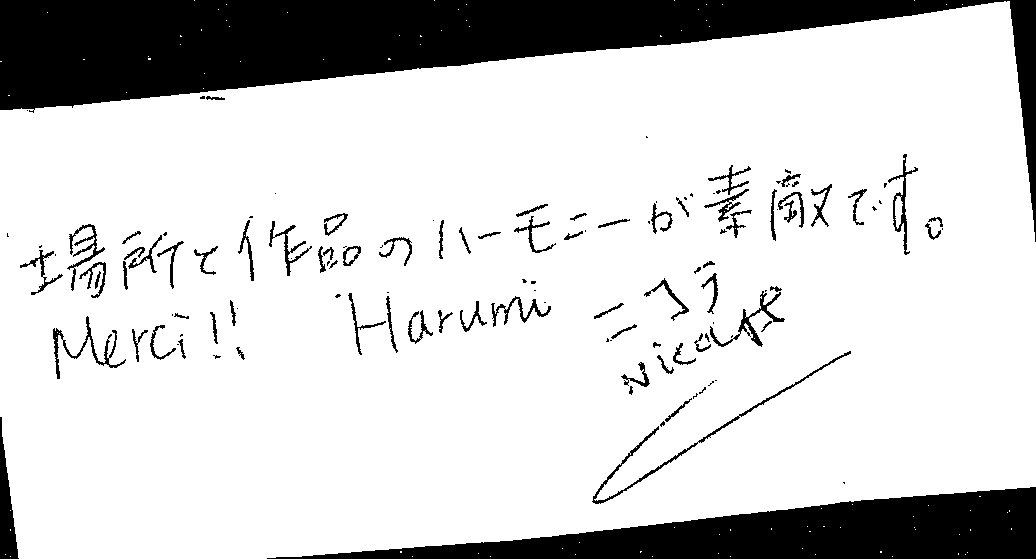 場所と作品のハーモニーが素敵です。
Merci!! Harumi ニコラ
Nicolas